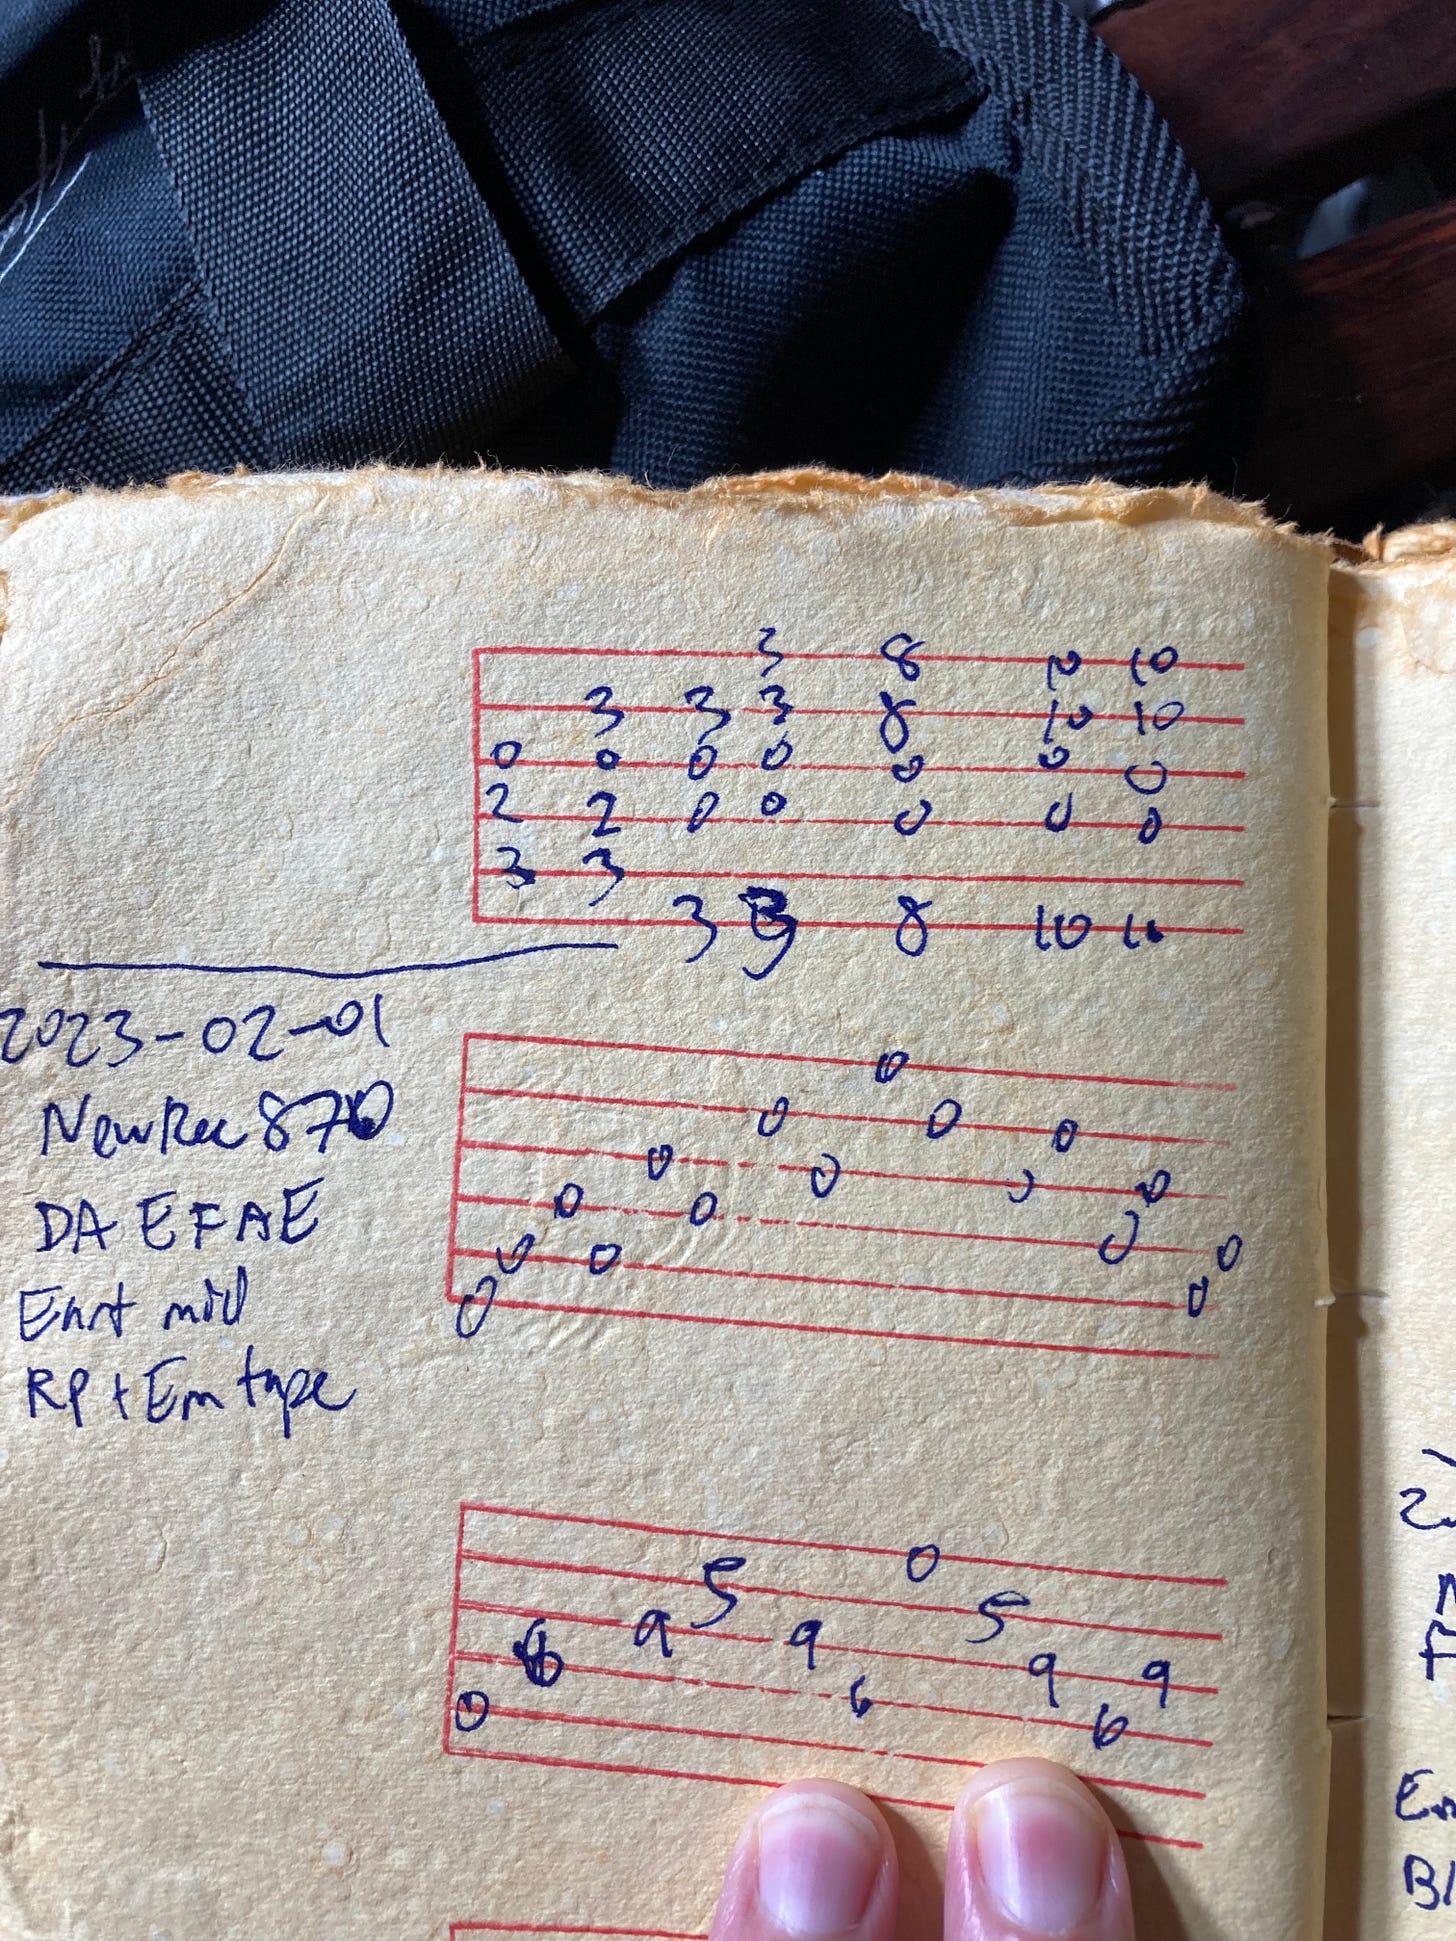 3 8 10 10
3 3 3 8 10 10
0 0 0 0 0 0 0
2 2 0 0 0 0 0
3 3
3 3 8 10 10
2023-02-01
NewRec 870
DA EFAE
RP + Em tape
0
0 0 0
0 0 0 0
0 0 0 0
0 0 0
0
0
5 5
9 9 9 9
6 6 6
0